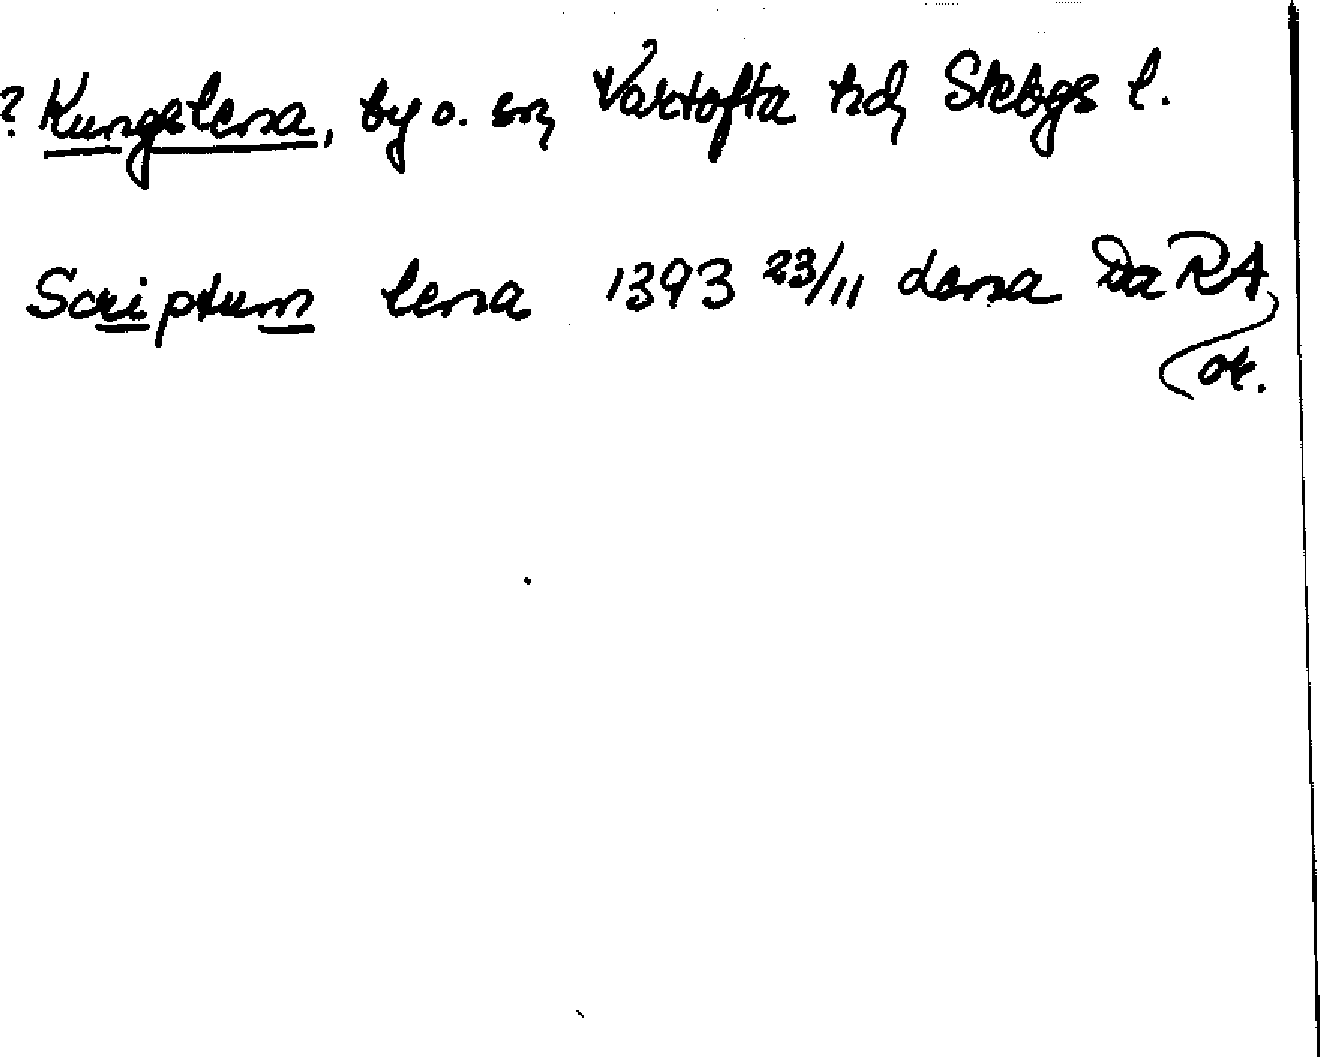 ? Kungslena, by o. sn, Vartofta hd, Skbgs l.
Scriptum lena 1393 23/11 Lena Da RA,
or.